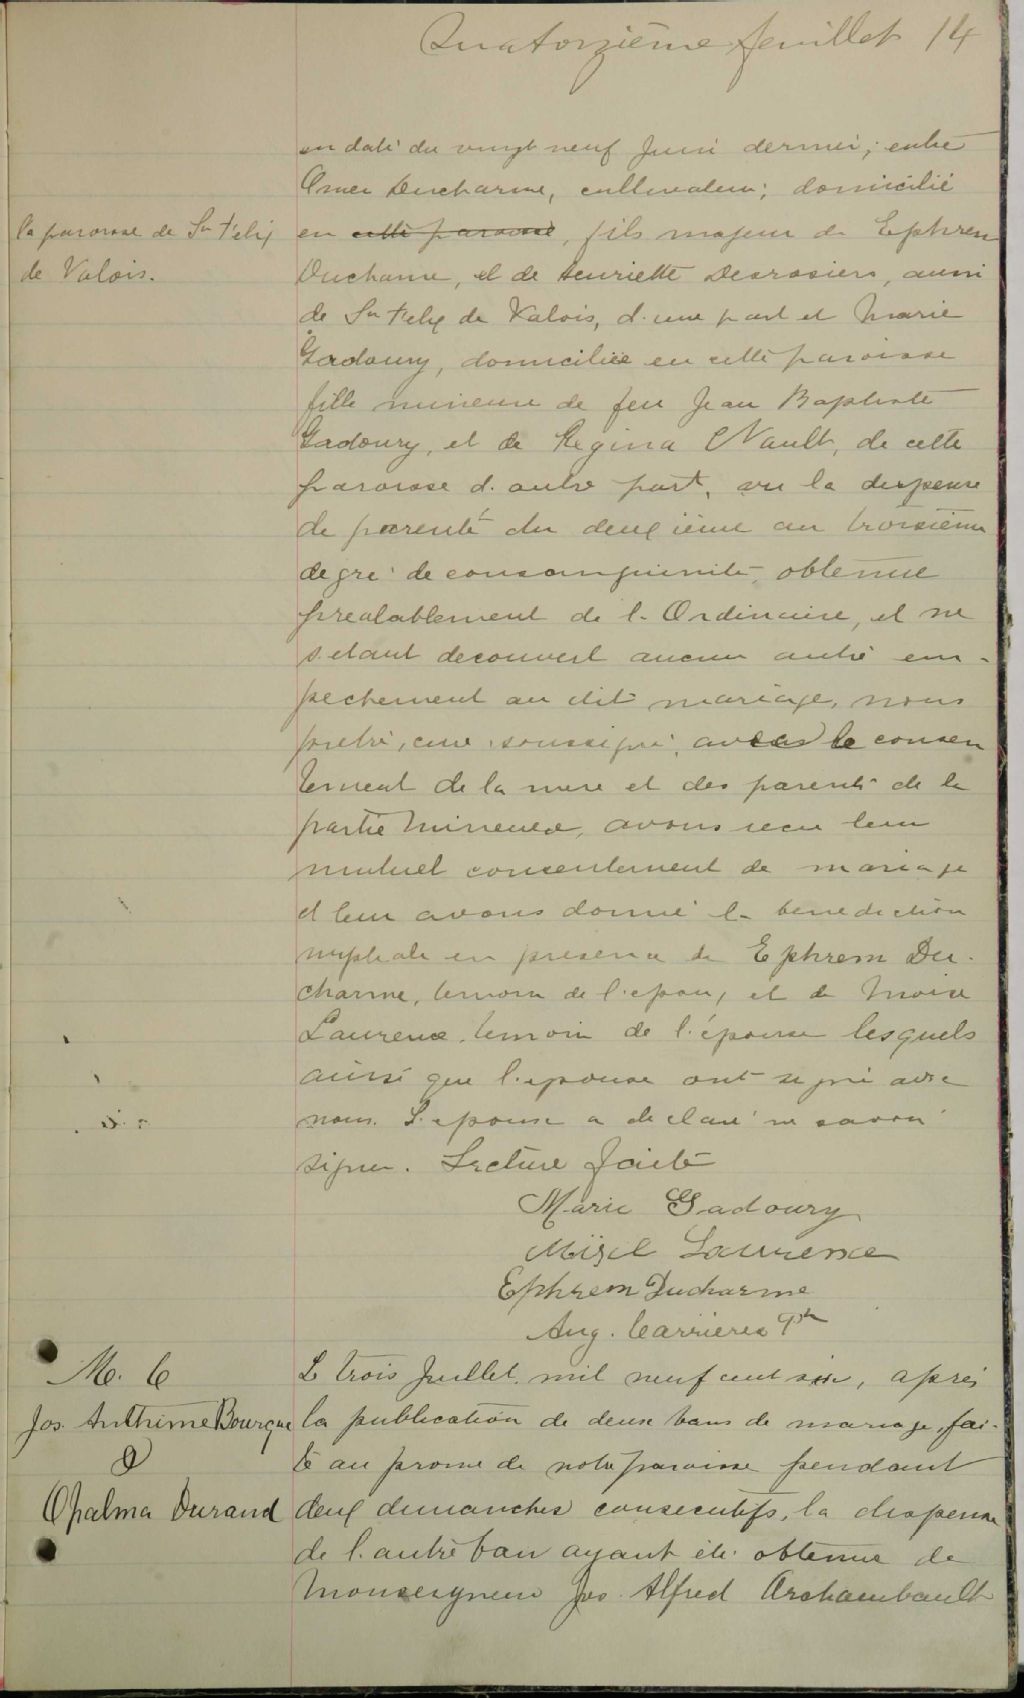 Quatorzième feuillet 14
en date du vingt neuf Juin dernier; entre
Omer Ducharme, cultivateur; domicilié
la paroisse de St Félix
de Valois.
en cette paroisse, fils majeur de Ephrem
Ducharme, et de Henriette Desrosiers, aussi
de St Felix de Valois, d'une part et Marie
Gadoury, domiciliée en cette paroisse
fille mineure de feu Jean Baptiste
Gadoury, et de Regina Nault, de cette
paroisse d'autre part, vu la dispense
de parenté du deuxième au troisième
degré de consanguinité, obtenue
prealablement de l'Ordinaire, et ne
s'etant decouvert aucun autre em-
pechement au dit mariage, nous
pretre, curé soussigné, avec le consen
tement de la mere et des parents de la
partie mineure, avons recu leur
mutuel consentement de mariage
et leur avons donné la benediction
nuptiale en presence de Ephrem Du-
charme, temoin de l'epoux, et de Moise
Laurence, temoin de l'épouse lesquels
ainsi que l'epouse ont signé avec
nous. L'epoux a declaré ne savoir
signer. Lecture faite
Marie Gadoury
Laurence
Ephrem Ducharme
Aug. Carrieres Ptr
M. 6
Jos. Anthime Bourque
&
Opalma Durand
Le trois Juillet mil neuf cent six, après
la publication de deux bans de mariage, fai-
te au prone de notre paroisse pendant
deux dimanches consecutifs, la dispense
de l'autre ban ayant été obtenue de
Monseigneur Jos. Alfred Archambault